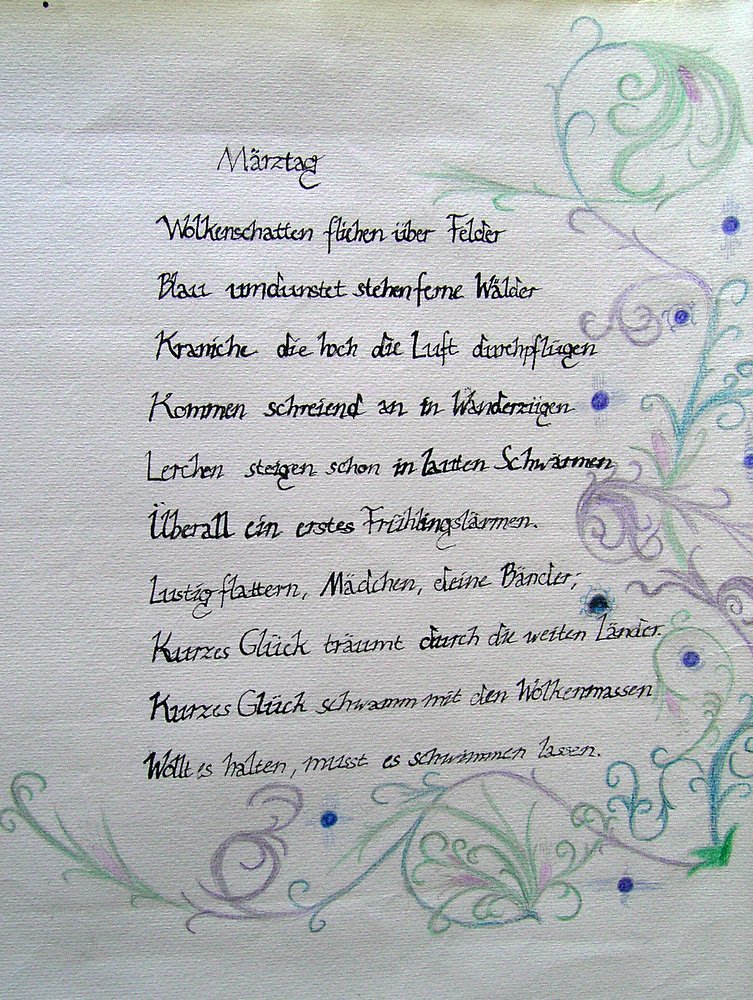 Märztag
Wolkenschatten fliehen über Felder
Blau umdunstet stehen ferne Wälder
Kraniche die hoch die Luft durchpflügen
Kommen schreiend an in Wanderzügen
Lerchen steigen schon in lauten Schwärmen
Überall ein erstes Frühlingslärmen.
Lustig flattern, Mädchen, deine Bänder;
Kurzes Glück träumt durch die weiten Länder.
Kurzes Glück schwamm mit den Wolkenmassen
Wollt es halten, musst es schwimmen lassen.